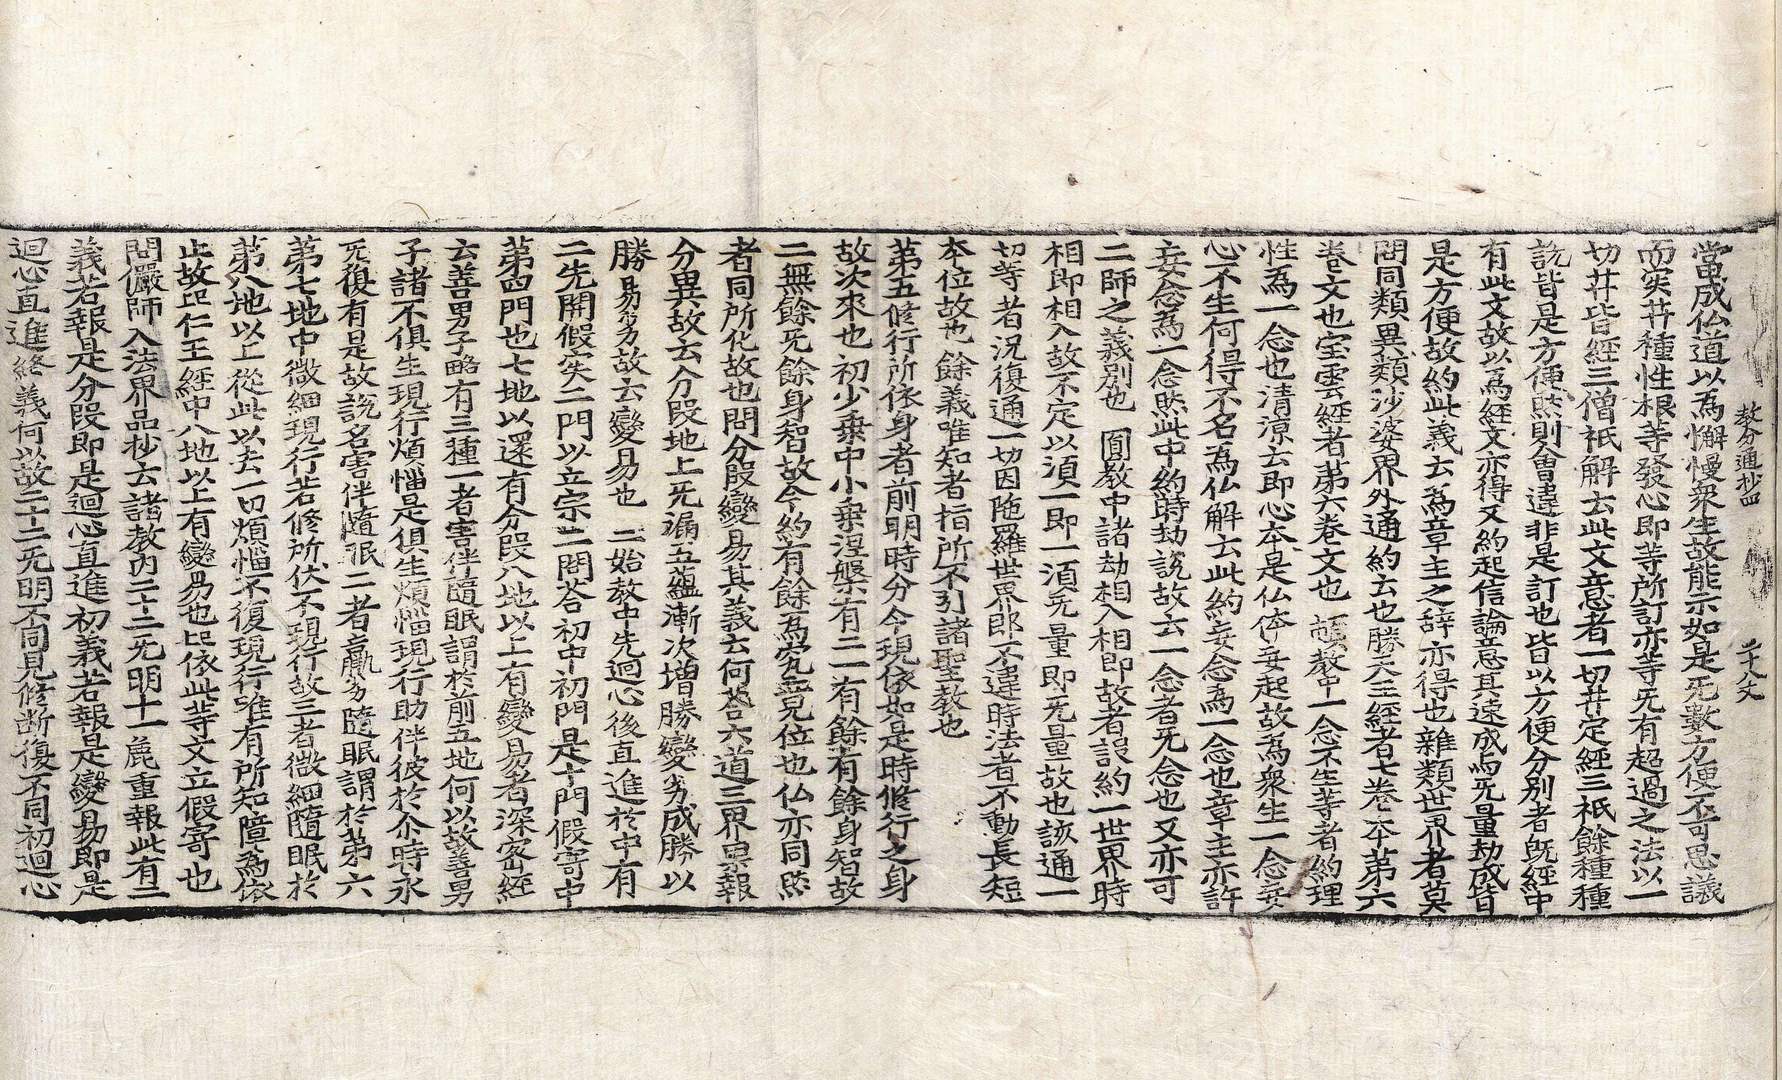 教分通抄四　二十八丈
當成仏道以為懈慢衆生故能示如是无數方便不可思議
而実井種性根等發心即等所訂亦等无有超過之法以一
切井皆經三僧祇解云此文意者一切井定經三祇餘種種
說皆是方便然則會違非是訂也皆以方便分別者既經中
有此文故以為經文亦得又約起信論意其速成与无量劫成皆
是方便故約此義云為章主之辞亦得也雜類世界者莫
問同類異類沙婆界外通約云也勝天王經者七卷本第六
卷文也宝雲經者第六卷文也　頓教中一念不生等者約理
性為一念也清凉云即心本是仏体妄起故為衆生一念妄
心不生何得不名為仏解云此約妄念為一念也章主亦許
妄念為一念然此中約時劫說故云一念者无念也又亦可
二師之義別也　圓教中諸劫相入相即故者誤約一世界時
相即相入故不定以須一即一須无量即无量故也該通一
切等者況復通一切因陁羅世界即不違時法者不動長短
本位故也餘義唯知者指所不引諸聖教也
第五修行所依身者前明時分今現依如是時修行之身
故次來也初少乗中小乗涅槃有二一有餘有餘身智故
二無餘无餘身智故今約有餘為究竟位也仏亦同然
者同所化故也問分段變易其義云何荅六道三界果報
分異故云分段地上无漏五蘊漸次增勝變劣成勝以
勝易劣故云變易也　二始教中先迴心後直進於中有
二先開假実二門以立宗二問荅初中初門是十門假寄中
第四門也七地以還有分段八地以上有變易者深密經
云善男子略有三種一者害伴隨眠謂於前五地何以故善男
子諸不俱生現行煩惱是俱生煩惱現行助伴彼於尒時永
无復有是故說名害伴隨眠二者羸劣隨眠謂於第六
第七地中微細現行若修所伏不現行故三者微細隨眠於
第八地以上從此以去一切煩惱不復現行唯有所知障為依
止故四仁王經中八地以上有變易也上依此等文立假寄也
問儼師入法界品抄云諸教內二十二无明十一麁重報此有二
義若報是分段即是迴心直進初義若報是變易即是
迴心直進終義何以故二十二无明不同見修断復不同初迴心